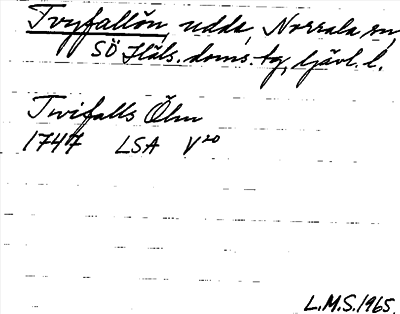 Tvyfallön, udde, Norrala sn,
SÖ Häls. doms. tg, Gävl. l.
Twifalls Öhn
1747 LSA V20
L.M.S. 1965.